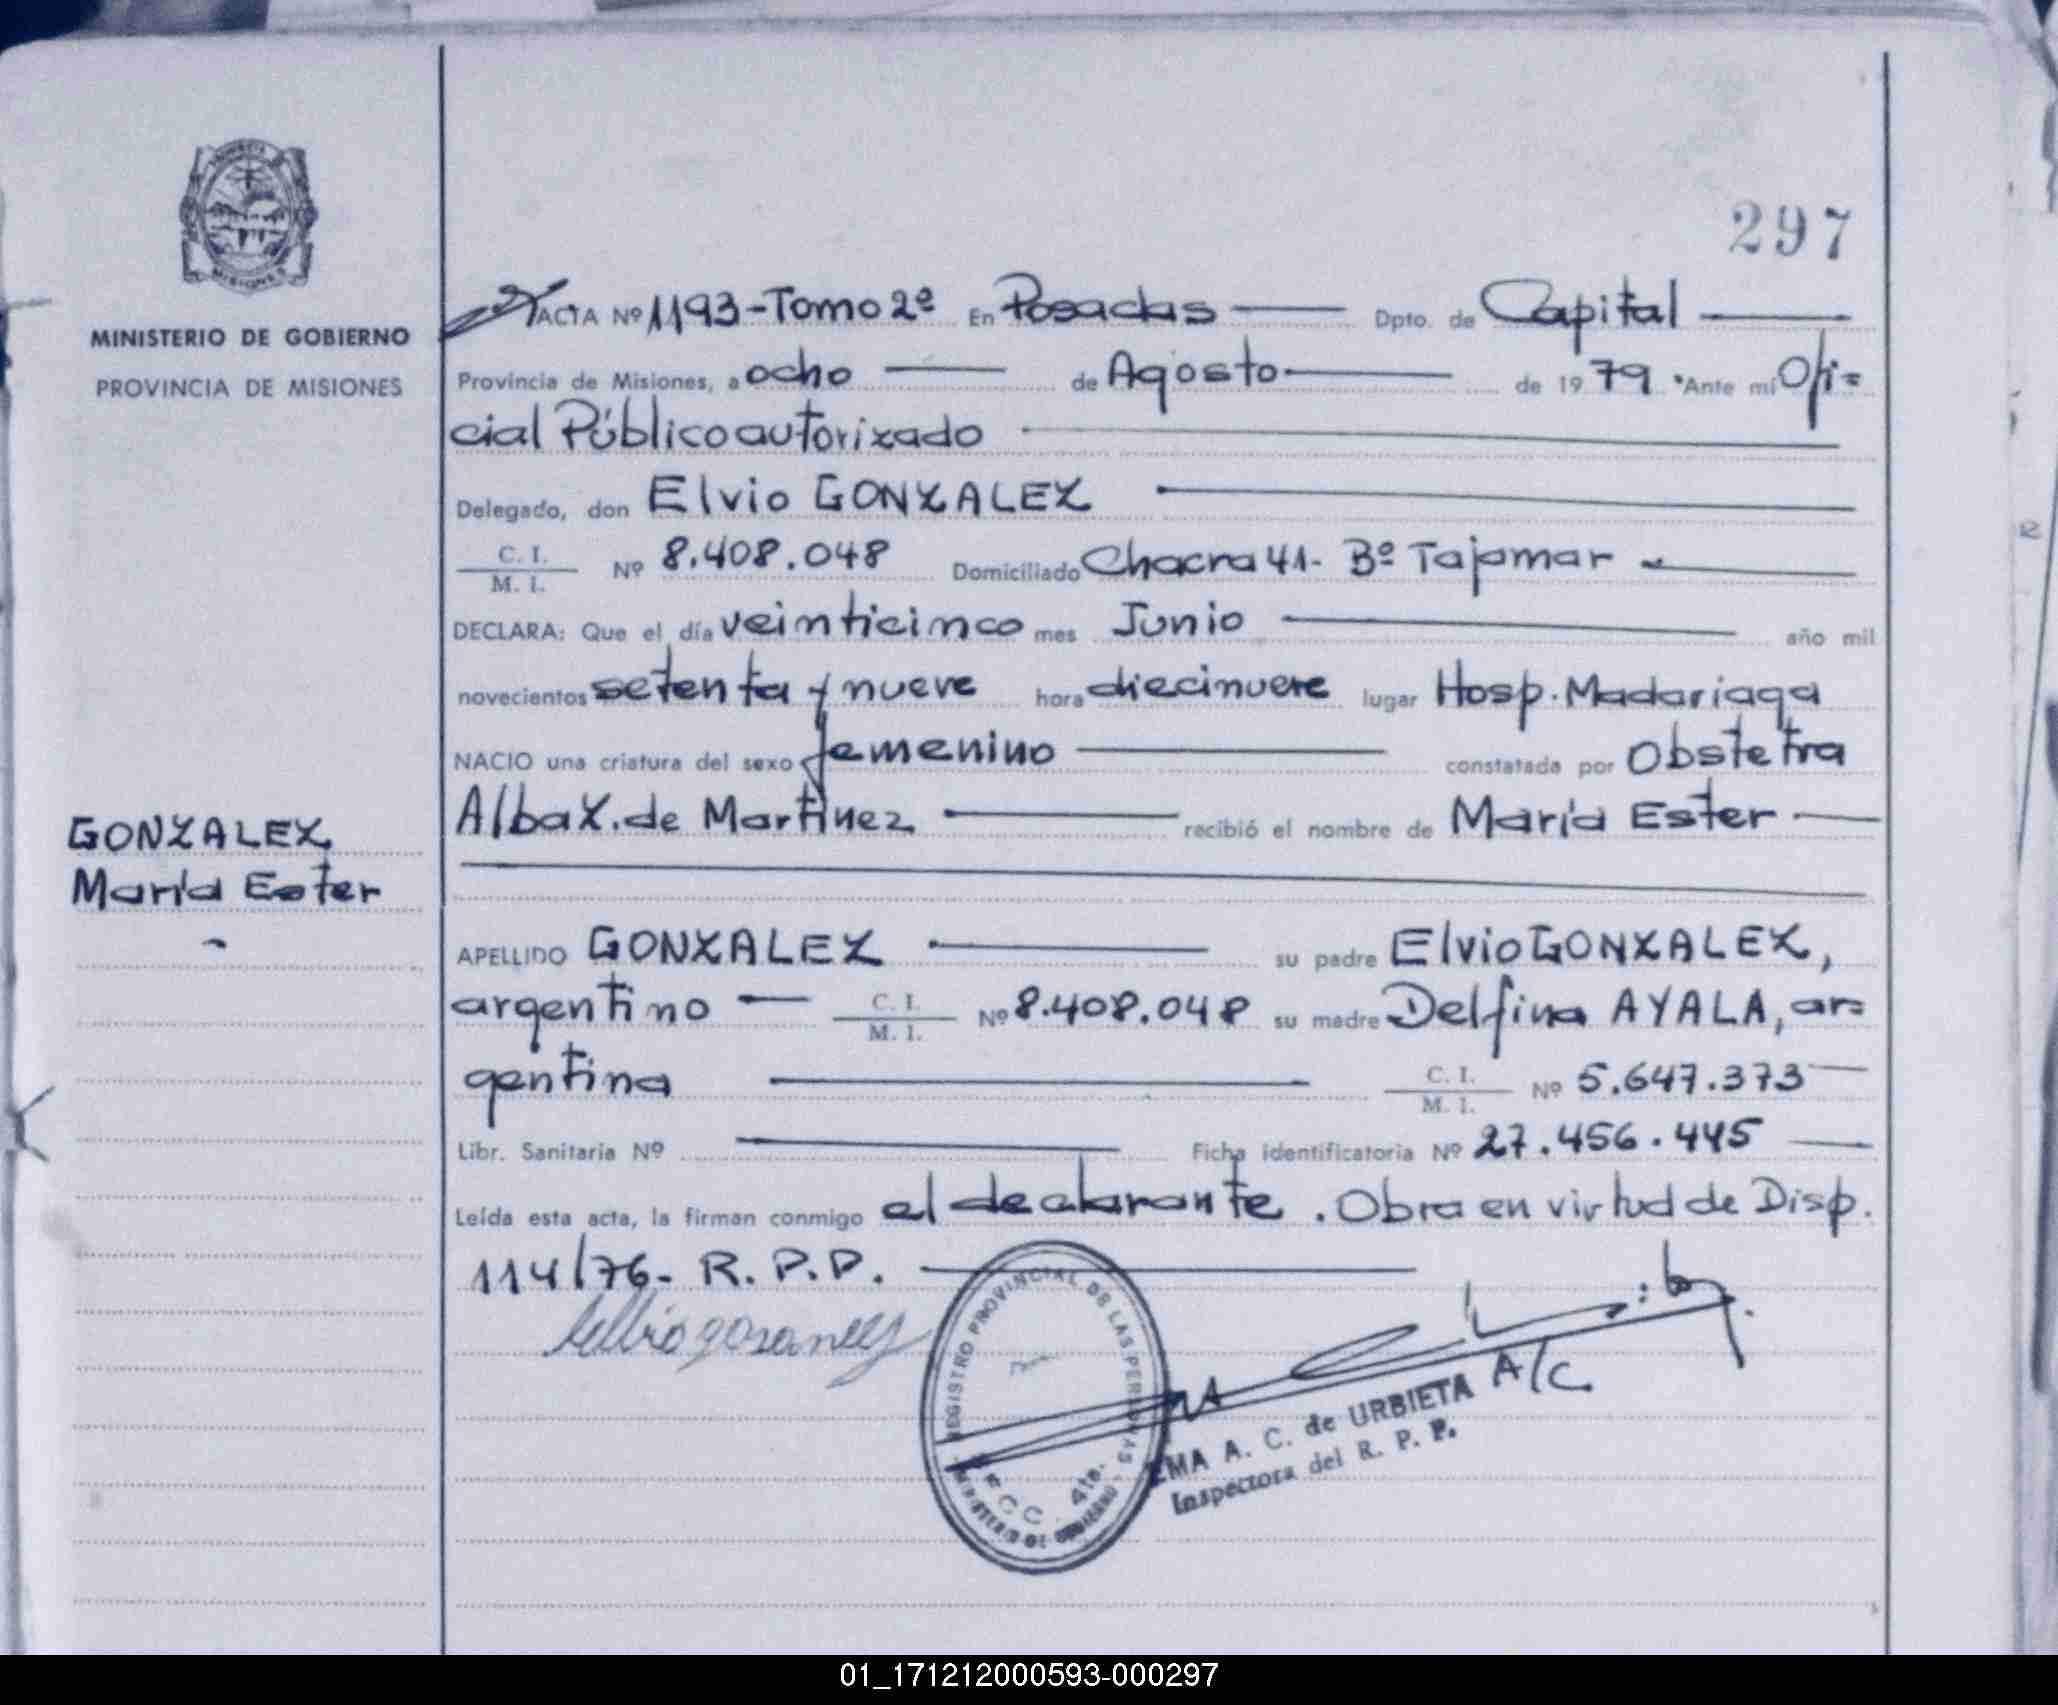 297
MISIONES
MINISTERIO DE GOBIERNO
PROVINCIA DE MISIONES
ACTA Nº 1193-Tomo 2º En Posadas Dpto. de Capital
Provincia de Misiones, a ocho de Agosto de 19 79 Ante mí Ofi=
cial Público autorizado
Delegado, don Elvio GONZALEZ
C. I.
M. I. Nº 8.408.048 Domiciliado Chacra 41- Bº Tajamar
DECLARA: Que el día veinticinco mes Junio año mil
novecientos setenta y nueve hora diecinueve lugar Hosp. Madariaga
NACIO una criatura del sexo femenino constatada por Obstetra
Alba Z. de Martinez recibió el nombre de María Ester
GONZALEZ
María Ester
APELLIDO GONZALEZ su padre Elvio GONZALEZ,
argentino C. I.
M. I. Nº 8.408.048 su madre Delfina AYALA, ar=
gentina C. I.
M. I. Nº 5.647.373
Libr. Sanitaria Nº Ficha identificatoria Nº 27.456.445
Leída esta acta, la firman conmigo el declarante. Obra en virtud de Disp.
114/76- R.P.P.
REGISTRO PROVINCIAL DE LAS PERSONAS
MINISTERIO DE GOBIERNO
4ta.
A/C
EMA A. C. de URBIETA
Inspectora del R. P. P.
01_171212000593-000297